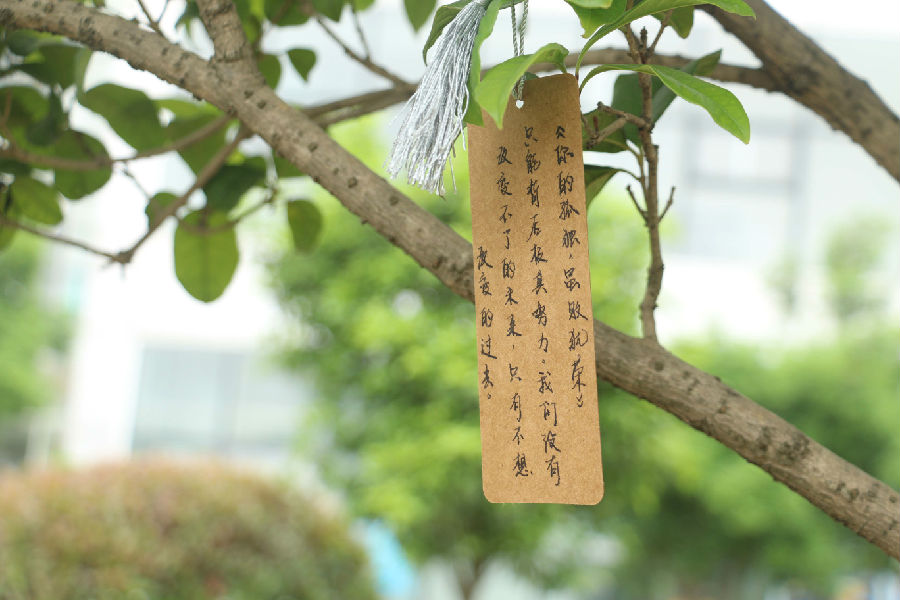 《你的孤独，虽败犹荣》
只能有努力。我们没有
改变不了的未来，只有不想
改变的过去。